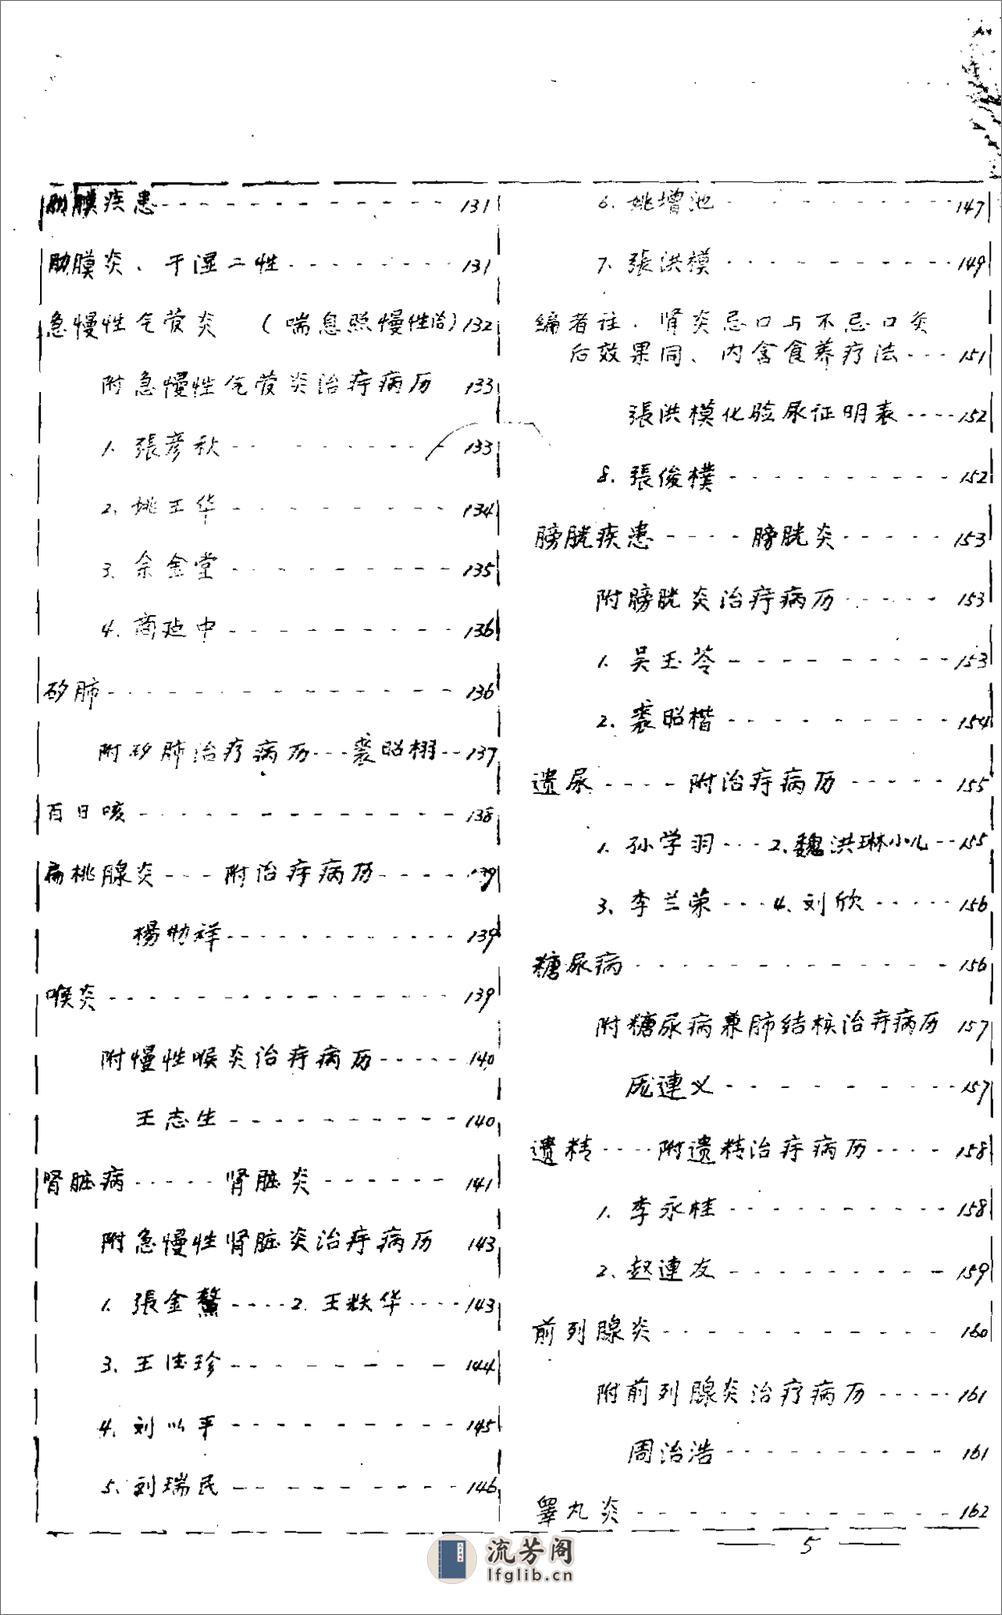 肋膜疾患 131
肋膜炎、干湿二性 131
急慢性气管炎 （喘息照慢性治）132
附急慢性气管炎治疗病历 133
1. 張彦秋 133
2. 姚王华 134
3. 余金堂 135
4. 商延中 136
矽肺 136
附矽肺治疗病历 裘昭栩 137
百日咳 138
扁桃腺炎 附治疗病历 139
楊勋祥 139
喉炎 139
附慢性喉炎治疗病历 140
王志生 140
肾脏病 肾脏炎 141
附急慢性肾脏炎治疗病历 143
1. 張金鰲 2. 王秩华 143
3. 王佳珍 144
4. 刘以平 145
5. 刘瑞民 146
6. 姚增池 147
7. 張洪模 149
编者注. 肾炎忌口与不忌口灸
后效果同、内含食养疗法 151
張洪模化验尿证明表 152
8. 張俊樸 152
膀胱疾患 膀胱炎 153
附膀胱炎治疗病历 153
1. 吴玉苓 153
2. 裘昭楷 154
遗尿 附治疗病历 155
1. 孙学羽 2. 魏洪琳小儿 155
3. 李兰荣 4. 刘欣 156
糖尿病 156
附糖尿病兼肺结核治疗病历 157
庞連义 157
遗精 附遗精治疗病历 158
1. 李永桂 158
2. 赵連友 159
前列腺炎 160
附前列腺炎治疗病历 161
周治浩 161
睾丸炎 162
5
流芳阁
lfglib.cn